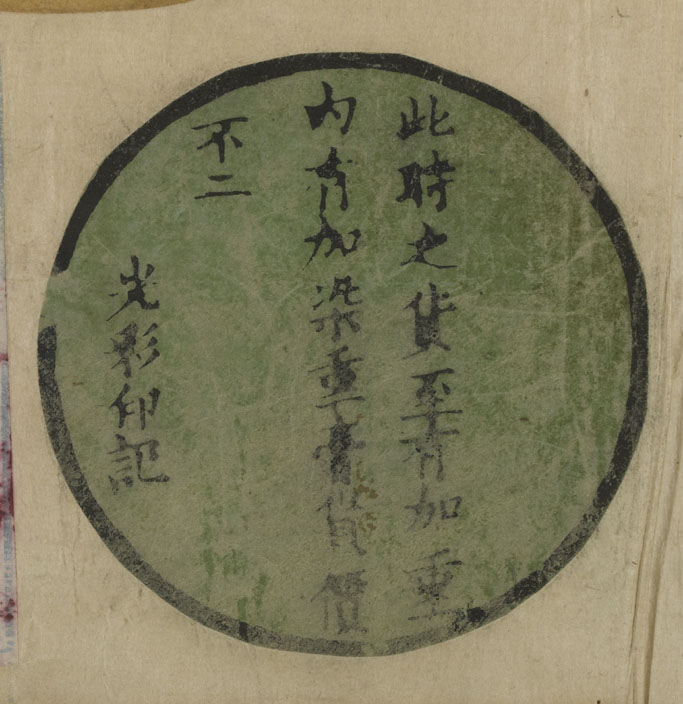 此時之貨至有加重
內有加染重膏貨價
不二
光彩印記